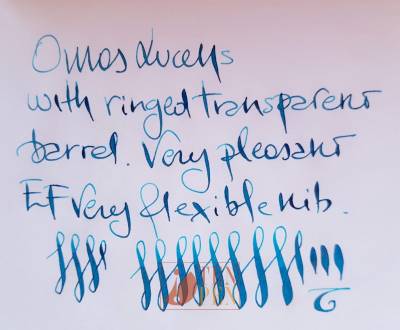 Omas Lucens
with ringed transparent
barrel. Very pleasant
EF very flexible nib.